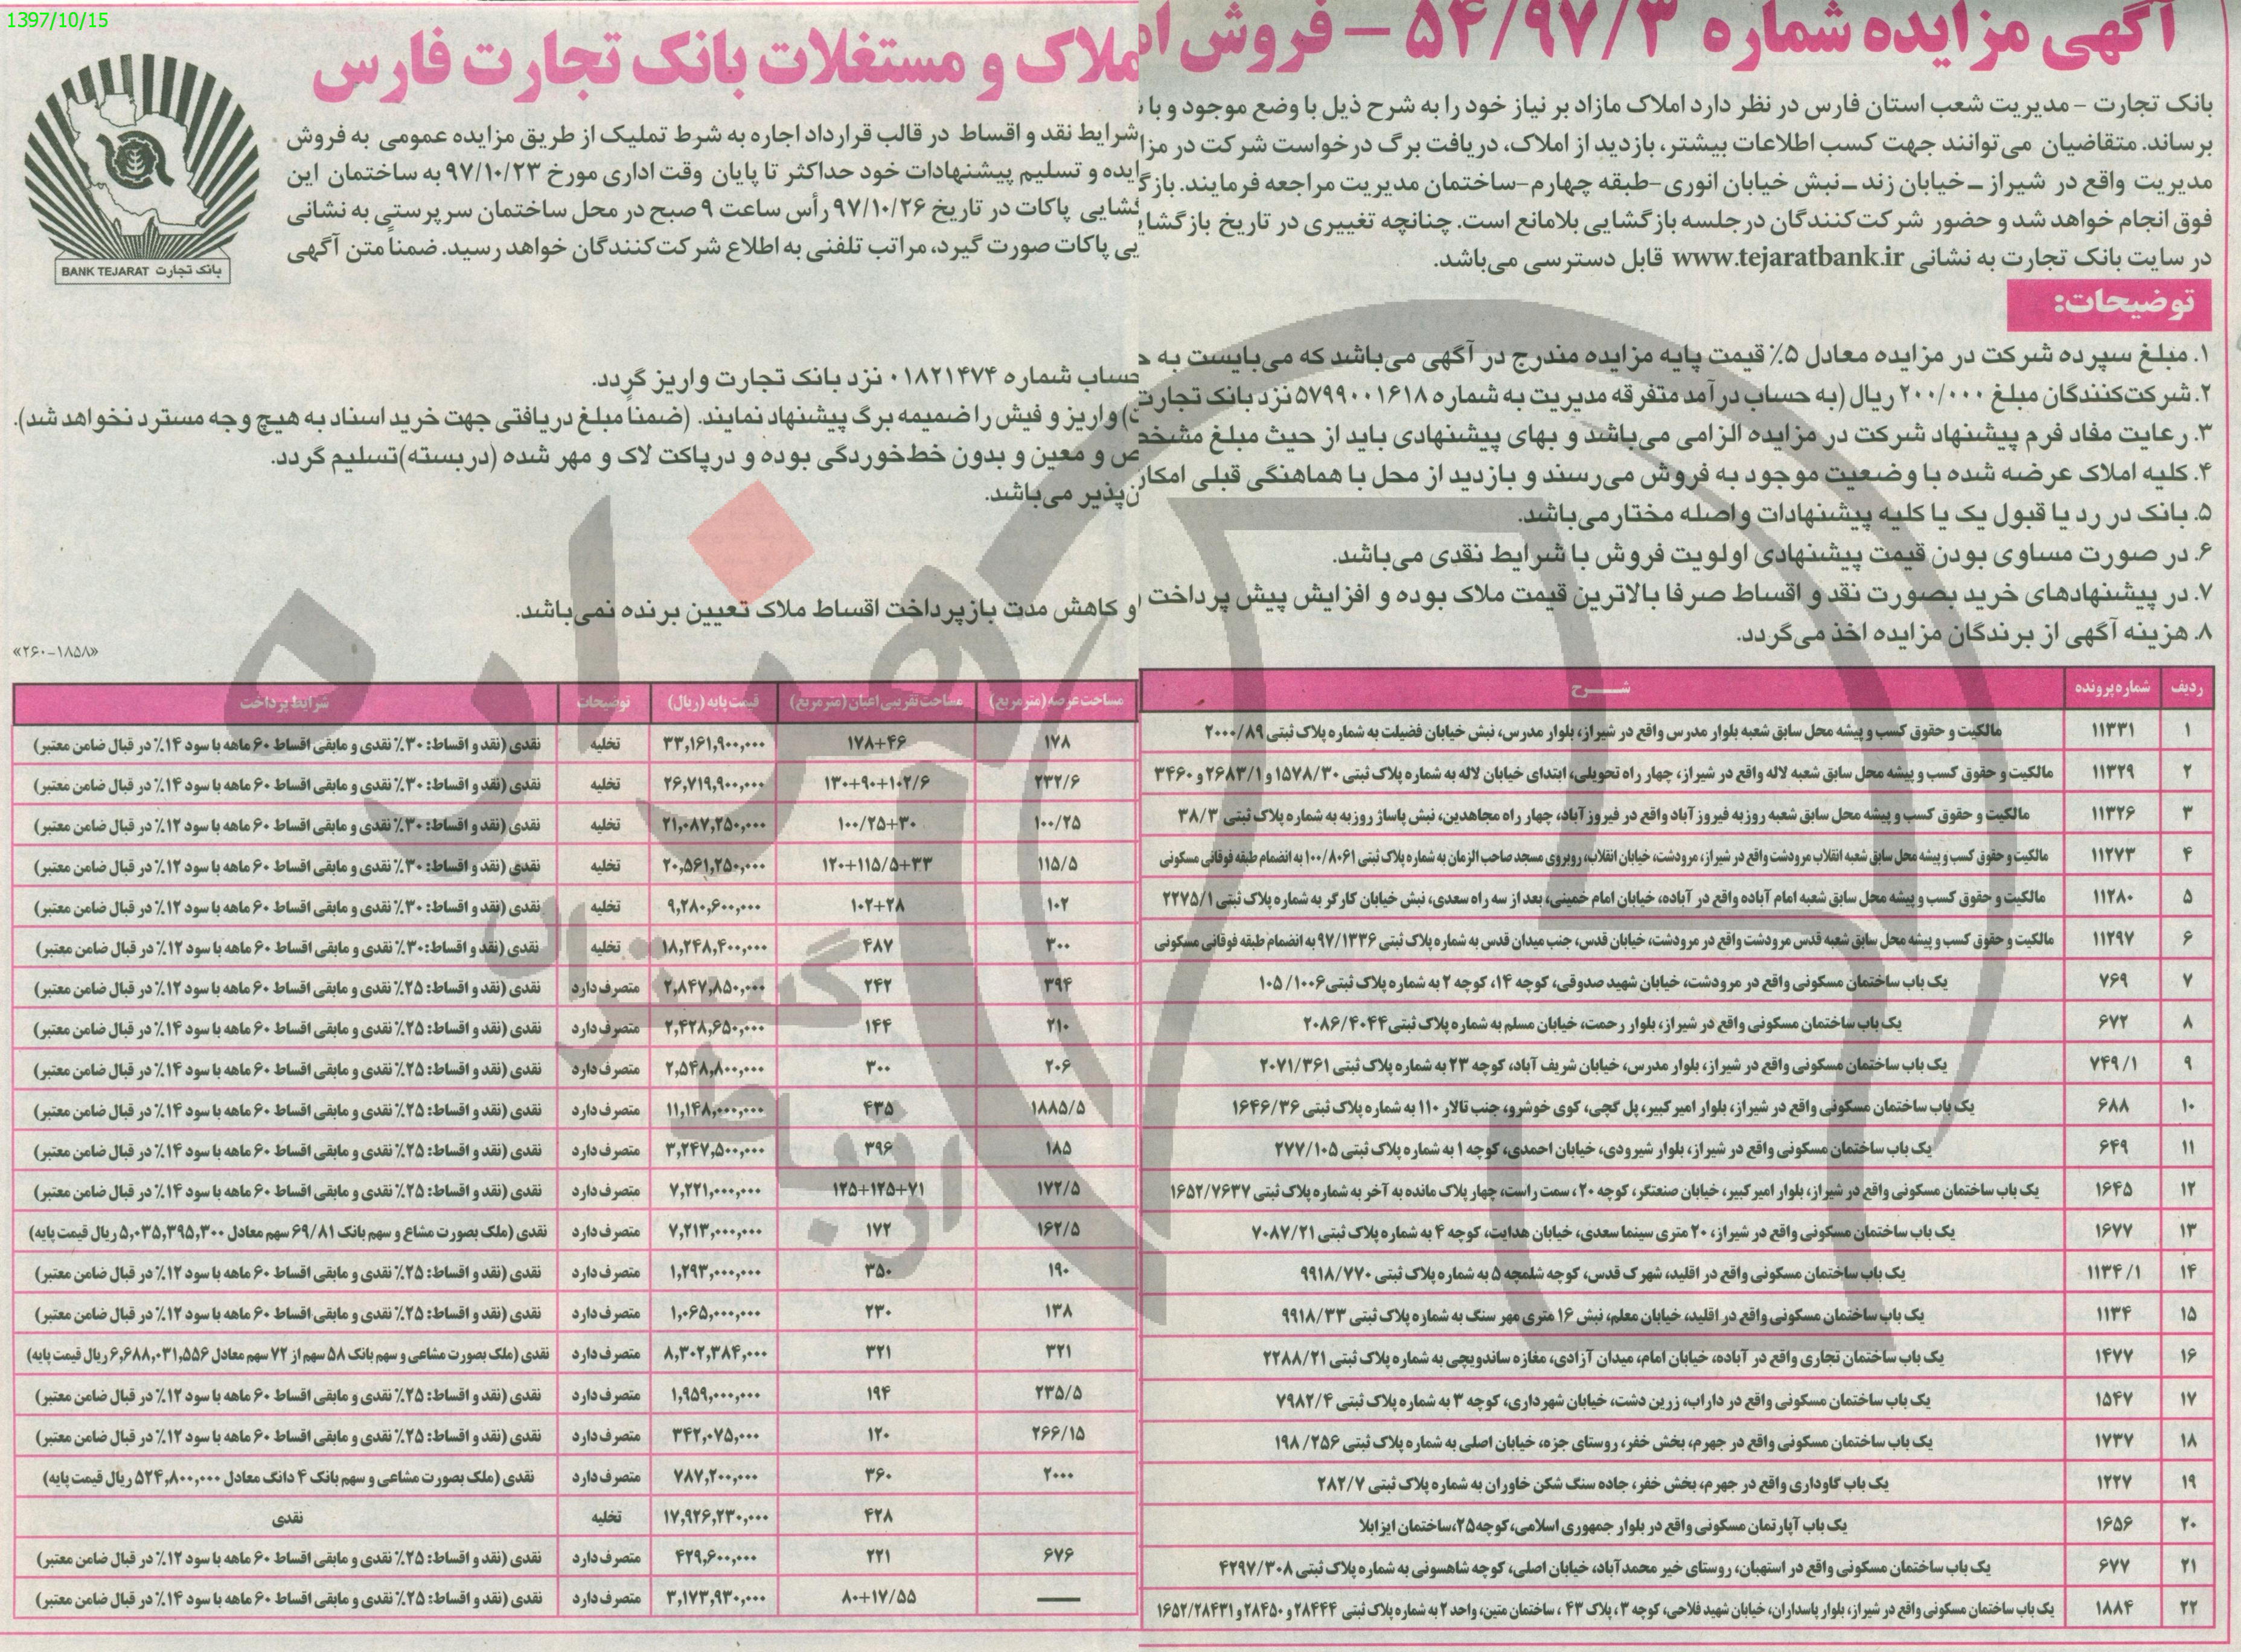 1397/10/15
آگهی مزایده شماره ۵۴/۹۷/۳ – فروش املاک و مستغلات بانک تجارت فارس
بانک تجارت BANK TEJARAT
بانک تجارت – مدیریت شعب استان فارس در نظر دارد املاک مازاد بر نیاز خود را به شرح ذیل با وضع موجود و با شرایط نقد و اقساط در قالب قرارداد اجاره به شرط تملیک از طریق مزایده عمومی به فروش
برساند. متقاضیان می‌توانند جهت کسب اطلاعات بیشتر، بازدید از املاک، دریافت برگ درخواست شرکت در مزایده و تسلیم پیشنهادات خود حداکثر تا پایان وقت اداری مورخ ۹۷/۱۰/۲۳ به ساختمان این
مدیریت واقع در شیراز – خیابان زند – نبش خیابان انوری – طبقه چهارم – ساختمان مدیریت مراجعه فرمایند. بازگشایی پاکات در تاریخ ۹۷/۱۰/۲۶ رأس ساعت ۹ صبح در محل ساختمان سرپرستی به نشانی
فوق انجام خواهد شد و حضور شرکت‌کنندگان در جلسه بازگشایی بلامانع است. چنانچه تغییری در تاریخ بازگشایی پاکات صورت گیرد، مراتب تلفنی به اطلاع شرکت‌کنندگان خواهد رسید. ضمناً متن آگهی
در سایت بانک تجارت به نشانی www.tejaratbank.ir قابل دسترسی می‌باشد.
توضیحات:
۱. مبلغ سپرده شرکت در مزایده معادل ۵٪ قیمت پایه مزایده مندرج در آگهی می‌باشد که می‌بایست به حساب شماره ۰۱۸۲۱۴۷۴ نزد بانک تجارت واریز گردد.
۲. شرکت‌کنندگان مبلغ ۲۰۰/۰۰۰ ریال (به حساب درآمد متفرقه مدیریت به شماره ۵۷۹۹۰۰۱۶۱۸ نزد بانک تجارت) واریز و فیش را ضمیمه برگ پیشنهاد نمایند. (ضمناً مبلغ دریافتی جهت خرید اسناد به هیچ وجه مسترد نخواهد شد).
۳. رعایت مفاد فرم پیشنهاد شرکت در مزایده الزامی می‌باشد و بهای پیشنهادی باید از حیث مبلغ مشخص و معین و بدون خط‌خوردگی بوده و در پاکت لاک و مهر شده (دربسته) تسلیم گردد.
۴. کلیه املاک عرضه شده با وضعیت موجود به فروش می‌رسند و بازدید از محل با هماهنگی قبلی امکان‌پذیر می‌باشد.
۵. بانک در رد یا قبول یک یا کلیه پیشنهادات واصله مختار می‌باشد.
۶. در صورت مساوی بودن قیمت پیشنهادی اولویت فروش با شرایط نقدی می‌باشد.
۷. در پیشنهادهای خرید بصورت نقد و اقساط صرفا بالاترین قیمت ملاک بوده و افزایش پیش پرداخت و کاهش مدت بازپرداخت اقساط ملاک تعیین برنده نمی‌باشد.
۸. هزینه آگهی از برندگان مزایده اخذ می‌گردد.
«۲۶۰-۱۸۵۸»
ردیف شماره پرونده شرح مساحت عرصه (متر مربع) مساحت تقریبی اعیان (متر مربع) قیمت پایه (ریال) توضیحات شرایط پرداخت
۱ ۱۱۳۳۱ مالکیت و حقوق کسب و پیشه محل سابق شعبه بلوار مدرس واقع در شیراز، بلوار مدرس، نبش خیابان فضیلت به شماره پلاک ثبتی ۲۰۰۰/۸۹ ۱۷۸ ۱۷۸+۴۶ ۳۳,۱۶۱,۹۰۰,۰۰۰ تخلیه نقدی (نقد و اقساط: ۳۰٪ نقدی و مابقی اقساط ۶۰ ماهه با سود ۱۴٪ در قبال ضامن معتبر)
۲ ۱۱۳۲۹ مالکیت و حقوق کسب و پیشه محل سابق شعبه لاله واقع در شیراز، چهار راه تحویلی، ابتدای خیابان لاله به شماره پلاک ثبتی ۱۵۷۸/۳۰ و ۲۶۸۳/۱ و ۳۴۶۰ ۲۳۲/۶ ۱۳۰+۹۰+۱۰۲/۶ ۲۶,۷۱۹,۹۰۰,۰۰۰ تخلیه نقدی (نقد و اقساط: ۳۰٪ نقدی و مابقی اقساط ۶۰ ماهه با سود ۱۴٪ در قبال ضامن معتبر)
۳ ۱۱۳۲۶ مالکیت و حقوق کسب و پیشه محل سابق شعبه روزبه فیروزآباد واقع در فیروزآباد، چهار راه مجاهدین، نبش پاساژ روزبه به شماره پلاک ثبتی ۳۸/۳ ۱۰۰/۲۵ ۱۰۰/۲۵+۳۰ ۲۱,۰۸۷,۲۵۰,۰۰۰ تخلیه نقدی (نقد و اقساط: ۳۰٪ نقدی و مابقی اقساط ۶۰ ماهه با سود ۱۲٪ در قبال ضامن معتبر)
۴ ۱۱۲۷۳ مالکیت و حقوق کسب و پیشه محل سابق شعبه انقلاب مرودشت واقع در شیراز، مرودشت، خیابان انقلاب، روبروی مسجد صاحب الزمان به شماره پلاک ثبتی ۱۰۰/۸۰۶۱ به انضمام طبقه فوقانی مسکونی ۱۱۵/۵ ۱۲۰+۱۱۵/۵+۳۳ ۲۰,۵۶۱,۲۵۰,۰۰۰ تخلیه نقدی (نقد و اقساط: ۳۰٪ نقدی و مابقی اقساط ۶۰ ماهه با سود ۱۲٪ در قبال ضامن معتبر)
۵ ۱۱۲۸۰ مالکیت و حقوق کسب و پیشه محل سابق شعبه امام آباده واقع در آباده، خیابان امام خمینی، بعد از سه راه سعدی، نبش خیابان کارگر به شماره پلاک ثبتی ۲۲۷۵/۱ ۱۰۲ ۱۰۲+۲۸ ۹,۲۸۰,۶۰۰,۰۰۰ تخلیه نقدی (نقد و اقساط: ۳۰٪ نقدی و مابقی اقساط ۶۰ ماهه با سود ۱۲٪ در قبال ضامن معتبر)
۶ ۱۱۲۹۷ مالکیت و حقوق کسب و پیشه محل سابق شعبه قدس مرودشت واقع در مرودشت، خیابان قدس، جنب میدان قدس به شماره پلاک ثبتی ۹۷/۱۳۳۶ به انضمام طبقه فوقانی مسکونی ۳۰۰ ۴۸۷ ۱۸,۲۴۸,۴۰۰,۰۰۰ تخلیه نقدی (نقد و اقساط: ۳۰٪ نقدی و مابقی اقساط ۶۰ ماهه با سود ۱۲٪ در قبال ضامن معتبر)
۷ ۷۶۹ یک باب ساختمان مسکونی واقع در مرودشت، خیابان شهید صدوقی، کوچه ۱۴، کوچه ۲ به شماره پلاک ثبتی ۱۰۵/۱۰۰۶ ۳۹۴ ۲۴۲ ۲,۸۴۷,۸۵۰,۰۰۰ متصرف دارد نقدی (نقد و اقساط: ۲۵٪ نقدی و مابقی اقساط ۶۰ ماهه با سود ۱۲٪ در قبال ضامن معتبر)
۸ ۶۷۲ یک باب ساختمان مسکونی واقع در شیراز، بلوار رحمت، خیابان مسلم به شماره پلاک ثبتی ۲۰۸۶/۴۰۴۴ ۲۱۰ ۱۴۴ ۲,۴۲۸,۶۵۰,۰۰۰ متصرف دارد نقدی (نقد و اقساط: ۲۵٪ نقدی و مابقی اقساط ۶۰ ماهه با سود ۱۴٪ در قبال ضامن معتبر)
۹ ۷۴۹/۱ یک باب ساختمان مسکونی واقع در شیراز، بلوار مدرس، خیابان شریف آباد، کوچه ۲۳ به شماره پلاک ثبتی ۲۰۷۱/۳۶۱ ۲۰۶ ۳۰۰ ۲,۵۴۸,۸۰۰,۰۰۰ متصرف دارد نقدی (نقد و اقساط: ۲۵٪ نقدی و مابقی اقساط ۶۰ ماهه با سود ۱۴٪ در قبال ضامن معتبر)
۱۰ ۶۸۸ یک باب ساختمان مسکونی واقع در شیراز، بلوار امیرکبیر، پل گچی، کوی خوشرو، جنب تالار ۱۱۰ به شماره پلاک ثبتی ۱۶۴۶/۳۶ ۱۸۸۵/۵ ۴۳۵ ۱۱,۱۴۸,۰۰۰,۰۰۰ متصرف دارد نقدی (نقد و اقساط: ۲۵٪ نقدی و مابقی اقساط ۶۰ ماهه با سود ۱۴٪ در قبال ضامن معتبر)
۱۱ ۶۴۹ یک باب ساختمان مسکونی واقع در شیراز، بلوار شیرودی، خیابان احمدی، کوچه ۱ به شماره پلاک ثبتی ۲۷۷/۱۰۵ ۱۸۵ ۳۹۶ ۳,۲۴۷,۵۰۰,۰۰۰ متصرف دارد نقدی (نقد و اقساط: ۲۵٪ نقدی و مابقی اقساط ۶۰ ماهه با سود ۱۴٪ در قبال ضامن معتبر)
۱۲ ۱۶۴۵ یک باب ساختمان مسکونی واقع در شیراز، بلوار امیرکبیر، خیابان صنعتگر، کوچه ۲۰، سمت راست، چهار پلاک مانده به آخر به شماره پلاک ثبتی ۱۶۵۲/۷۶۳۷ ۱۷۲/۵ ۱۲۵+۱۲۵+۷۱ ۷,۲۲۱,۰۰۰,۰۰۰ متصرف دارد نقدی (نقد و اقساط: ۲۵٪ نقدی و مابقی اقساط ۶۰ ماهه با سود ۱۴٪ در قبال ضامن معتبر)
۱۳ ۱۶۷۷ یک باب ساختمان مسکونی واقع در شیراز، ۲۰ متری سینما سعدی، خیابان هدایت، کوچه ۴ به شماره پلاک ثبتی ۷۰۸۷/۲۱ ۱۶۲/۵ ۱۷۲ ۷,۲۱۳,۰۰۰,۰۰۰ متصرف دارد نقدی (ملک بصورت مشاع و سهم بانک ۶۹/۸۱ سهم معادل ۵,۰۳۵,۳۹۵,۳۰۰ ریال قیمت پایه)
۱۴ ۱۱۳۴/۱ یک باب ساختمان مسکونی واقع در اقلید، شهرک قدس، کوچه شلمچه ۵ به شماره پلاک ثبتی ۹۹۱۸/۷۷۰ ۱۹۰ ۳۵۰ ۱,۲۹۳,۰۰۰,۰۰۰ متصرف دارد نقدی (نقد و اقساط: ۲۵٪ نقدی و مابقی اقساط ۶۰ ماهه با سود ۱۲٪ در قبال ضامن معتبر)
۱۵ ۱۱۳۴ یک باب ساختمان مسکونی واقع در اقلید، خیابان معلم، نبش ۱۶ متری مهر سنگ به شماره پلاک ثبتی ۹۹۱۸/۳۳ ۱۳۸ ۲۳۰ ۱,۰۶۵,۰۰۰,۰۰۰ متصرف دارد نقدی (نقد و اقساط: ۲۵٪ نقدی و مابقی اقساط ۶۰ ماهه با سود ۱۲٪ در قبال ضامن معتبر)
۱۶ ۱۴۷۷ یک باب ساختمان تجاری واقع در آباده، خیابان امام، میدان آزادی، مغازه ساندویچی به شماره پلاک ثبتی ۲۲۸۸/۲۱ ۳۲۱ ۳۲۱ ۸,۳۰۲,۳۸۴,۰۰۰ متصرف دارد نقدی (ملک بصورت مشاعی و سهم بانک ۵۸ سهم از ۷۲ سهم معادل ۶,۶۸۸,۰۳۱,۵۵۶ ریال قیمت پایه)
۱۷ ۱۵۴۷ یک باب ساختمان مسکونی واقع در داراب، زرین دشت، خیابان شهرداری، کوچه ۳ به شماره پلاک ثبتی ۷۹۸۲/۴ ۲۳۵/۵ ۱۹۴ ۱,۹۵۹,۰۰۰,۰۰۰ متصرف دارد نقدی (نقد و اقساط: ۲۵٪ نقدی و مابقی اقساط ۶۰ ماهه با سود ۱۲٪ در قبال ضامن معتبر)
۱۸ ۱۷۳۷ یک باب ساختمان مسکونی واقع در جهرم، بخش خفر، روستای جزه، خیابان اصلی به شماره پلاک ثبتی ۱۹۸/۲۵۶ ۲۶۶/۱۵ ۱۲۰ ۳۴۲,۰۷۵,۰۰۰ متصرف دارد نقدی (نقد و اقساط: ۲۵٪ نقدی و مابقی اقساط ۶۰ ماهه با سود ۱۲٪ در قبال ضامن معتبر)
۱۹ ۱۲۲۷ یک باب گاوداری واقع در جهرم، بخش خفر، جاده سنگ شکن خاوران به شماره پلاک ثبتی ۲۸۲/۷ ۲۰۰۰ ۳۶۰ ۷۸۷,۲۰۰,۰۰۰ متصرف دارد نقدی (ملک بصورت مشاعی و سهم بانک ۴ دانگ معادل ۵۲۴,۸۰۰,۰۰۰ ریال قیمت پایه)
۲۰ ۱۶۵۶ یک باب آپارتمان مسکونی واقع در بلوار جمهوری اسلامی، کوچه ۲۵، ساختمان ایزابلا ۴۲۸ ۱۷,۹۲۶,۲۳۰,۰۰۰ تخلیه نقدی
۲۱ ۶۷۷ یک باب ساختمان مسکونی واقع در استهبان، روستای خیر محمدآباد، خیابان اصلی، کوچه شاهسونی به شماره پلاک ثبتی ۴۲۹۷/۳۰۸ ۶۷۶ ۲۲۱ ۴۲۹,۶۰۰,۰۰۰ متصرف دارد نقدی (نقد و اقساط: ۲۵٪ نقدی و مابقی اقساط ۶۰ ماهه با سود ۱۲٪ در قبال ضامن معتبر)
۲۲ ۱۸۸۴ یک باب ساختمان مسکونی واقع در شیراز، بلوار پاسداران، خیابان شهید فلاحی، کوچه ۳، پلاک ۴۳، ساختمان متین، واحد ۲ به شماره پلاک ثبتی ۲۸۴۴۴ و ۲۸۴۵۰ و ۱۶۵۲/۲۸۴۳۱ — ۸۰+۱۷/۵۵ ۳,۱۷۳,۹۳۰,۰۰۰ متصرف دارد نقدی (نقد و اقساط: ۲۵٪ نقدی و مابقی اقساط ۶۰ ماهه با سود ۱۴٪ در قبال ضامن معتبر)